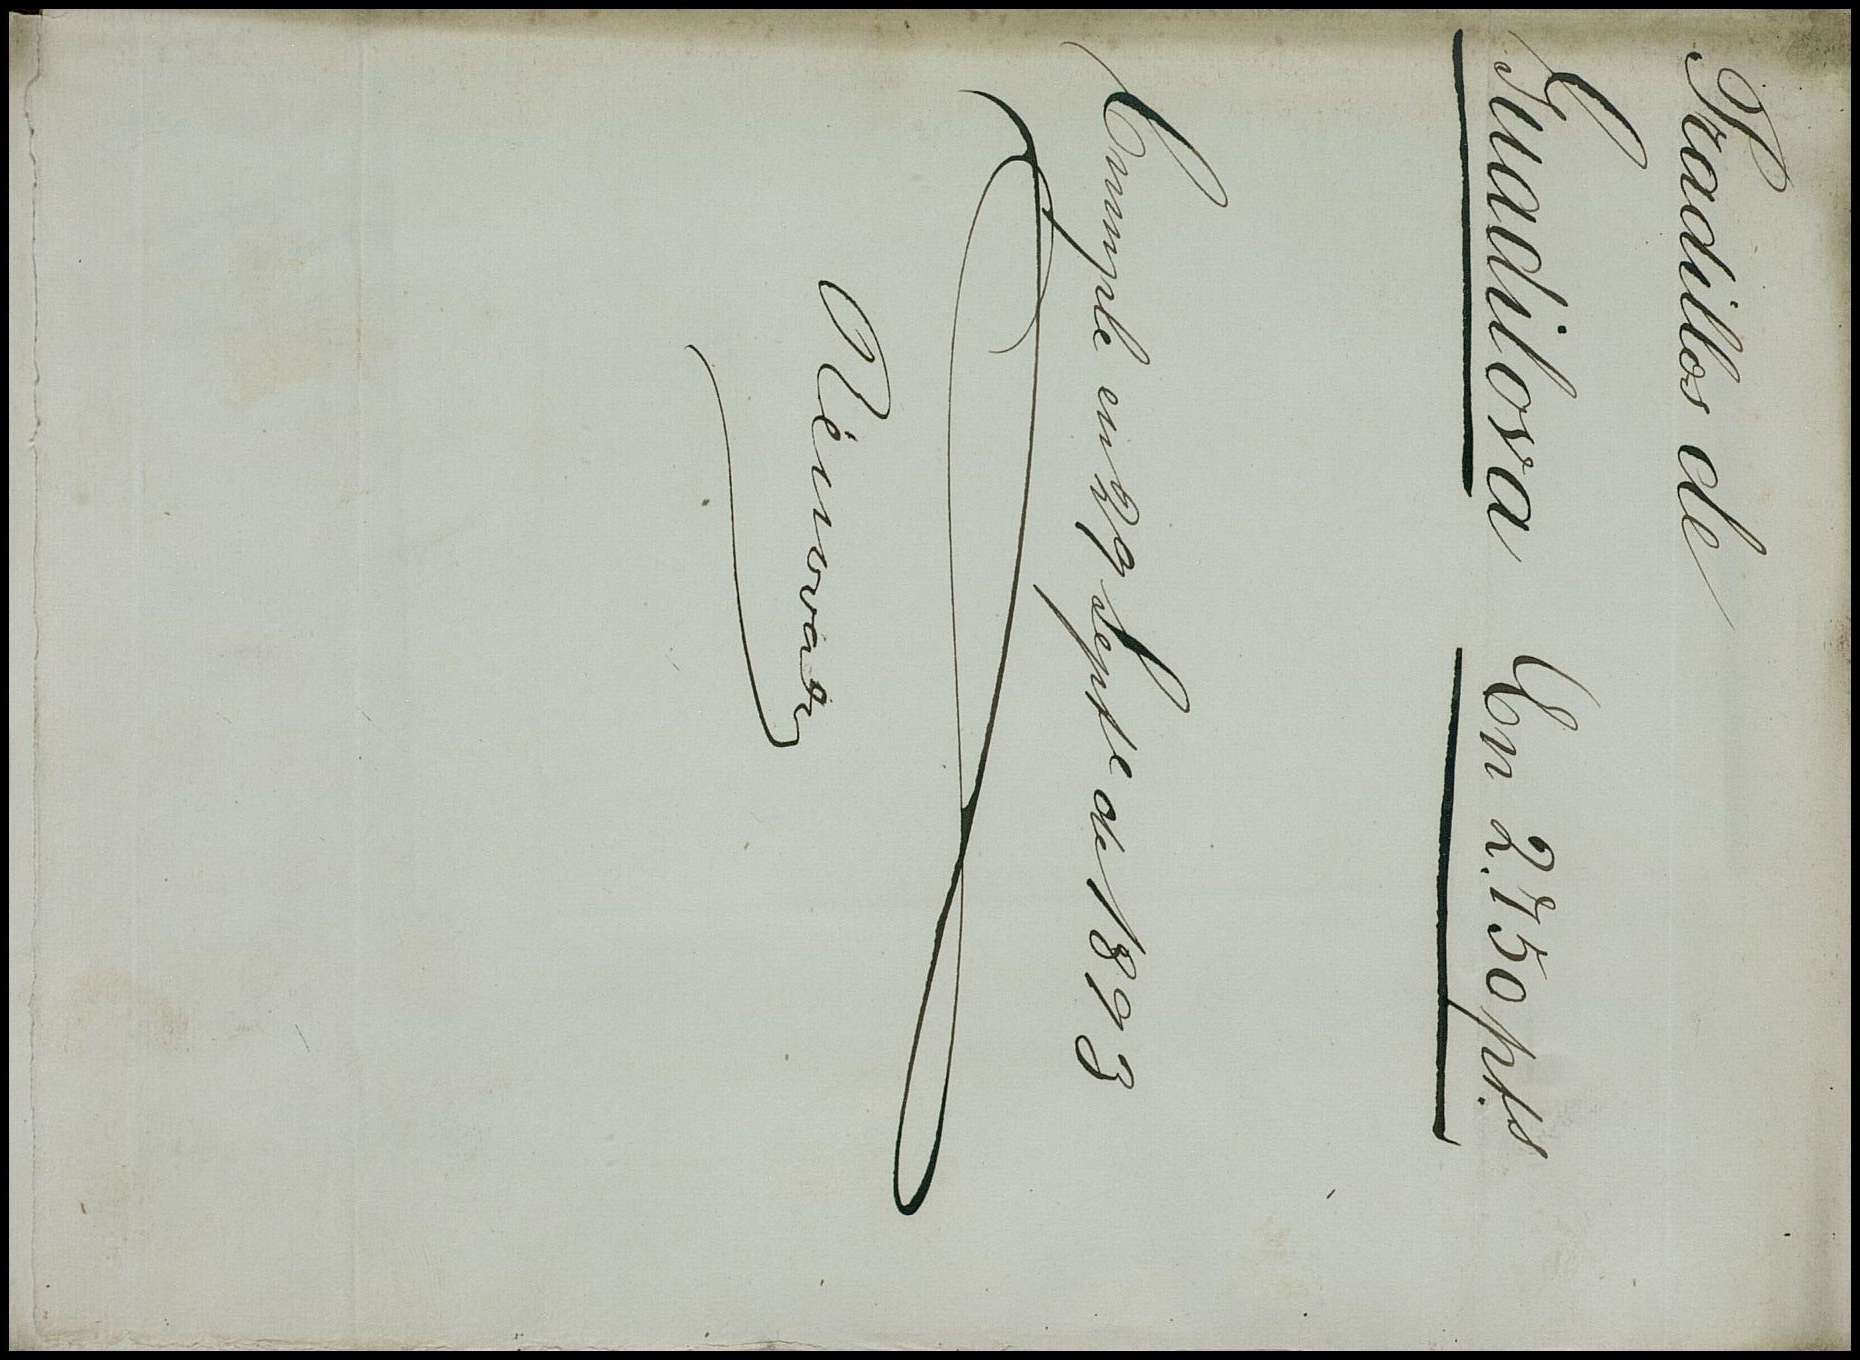 Pradillos de
Guadilosa En 2.750 pts
Cumple en 29 Sepste de 1893
Renovada